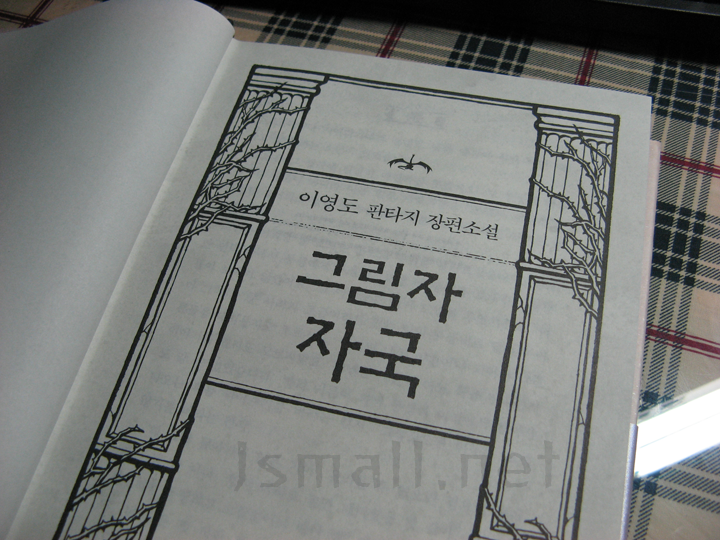 이영도 판타지 장편소설
그림자
자국
lsmall.net